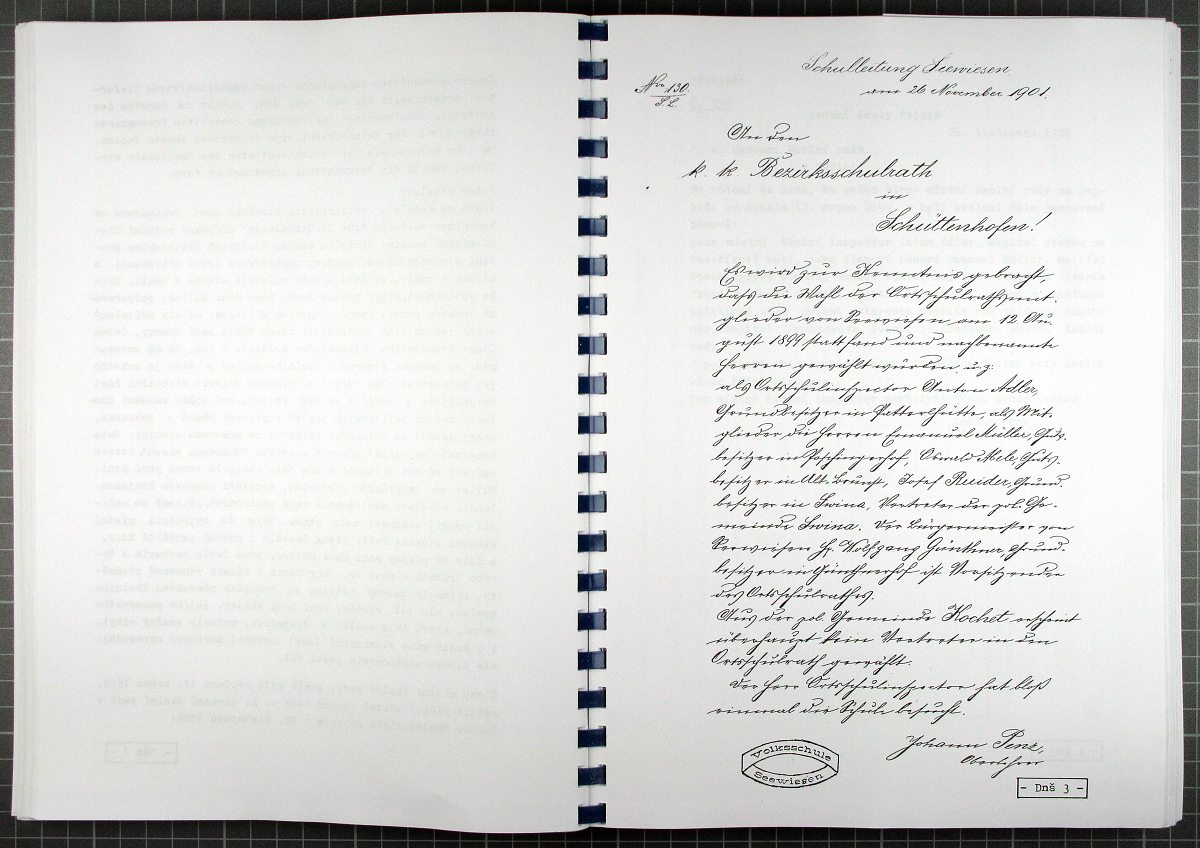 Schulleitung Seewiesen
am 26. November 1901.
Nro. 130.
S. L.
An den
k. k. Bezirksschulrath
in
Schüttenhofen!
Es wird zur Kenntnis gebracht,
dass die Wahl der Ortsschulrathsmit-
glieder von Seewiesen am 12. Au-
gust 1899 stattfand und nachbenannte
Herren gewählt wurden u. z:
als Ortsschulinspector Anton Adler,
Grundbesitzer in Patterlhütte, als Mit-
glieder die Herren Emanuel Müller, Guts-
besitzer in Paschingerhof, Oswald Mele, Guts-
besitzer in Alt-Brunst, Josef Ruider, Grund-
besitzer in Swina, Vertreter der pol. Ge-
meinde Swina. Der Bürgermeister von
Seewiesen H. Wolfgang Günthner, Grund-
besitzer in Günthnerhof ist Vorsitzender
des Ortsschulrathes.
Aus der pol. Gemeinde Kochet erscheint
überhaupt kein Vertreter in den
Ortsschulrath gewählt.
Der Herr Ortsschulinspector hat bloß
einmal die Schule besucht.
Johann Penz,
Oberlehrer
Volksschule
Seewiesen
- Dnš 3 -